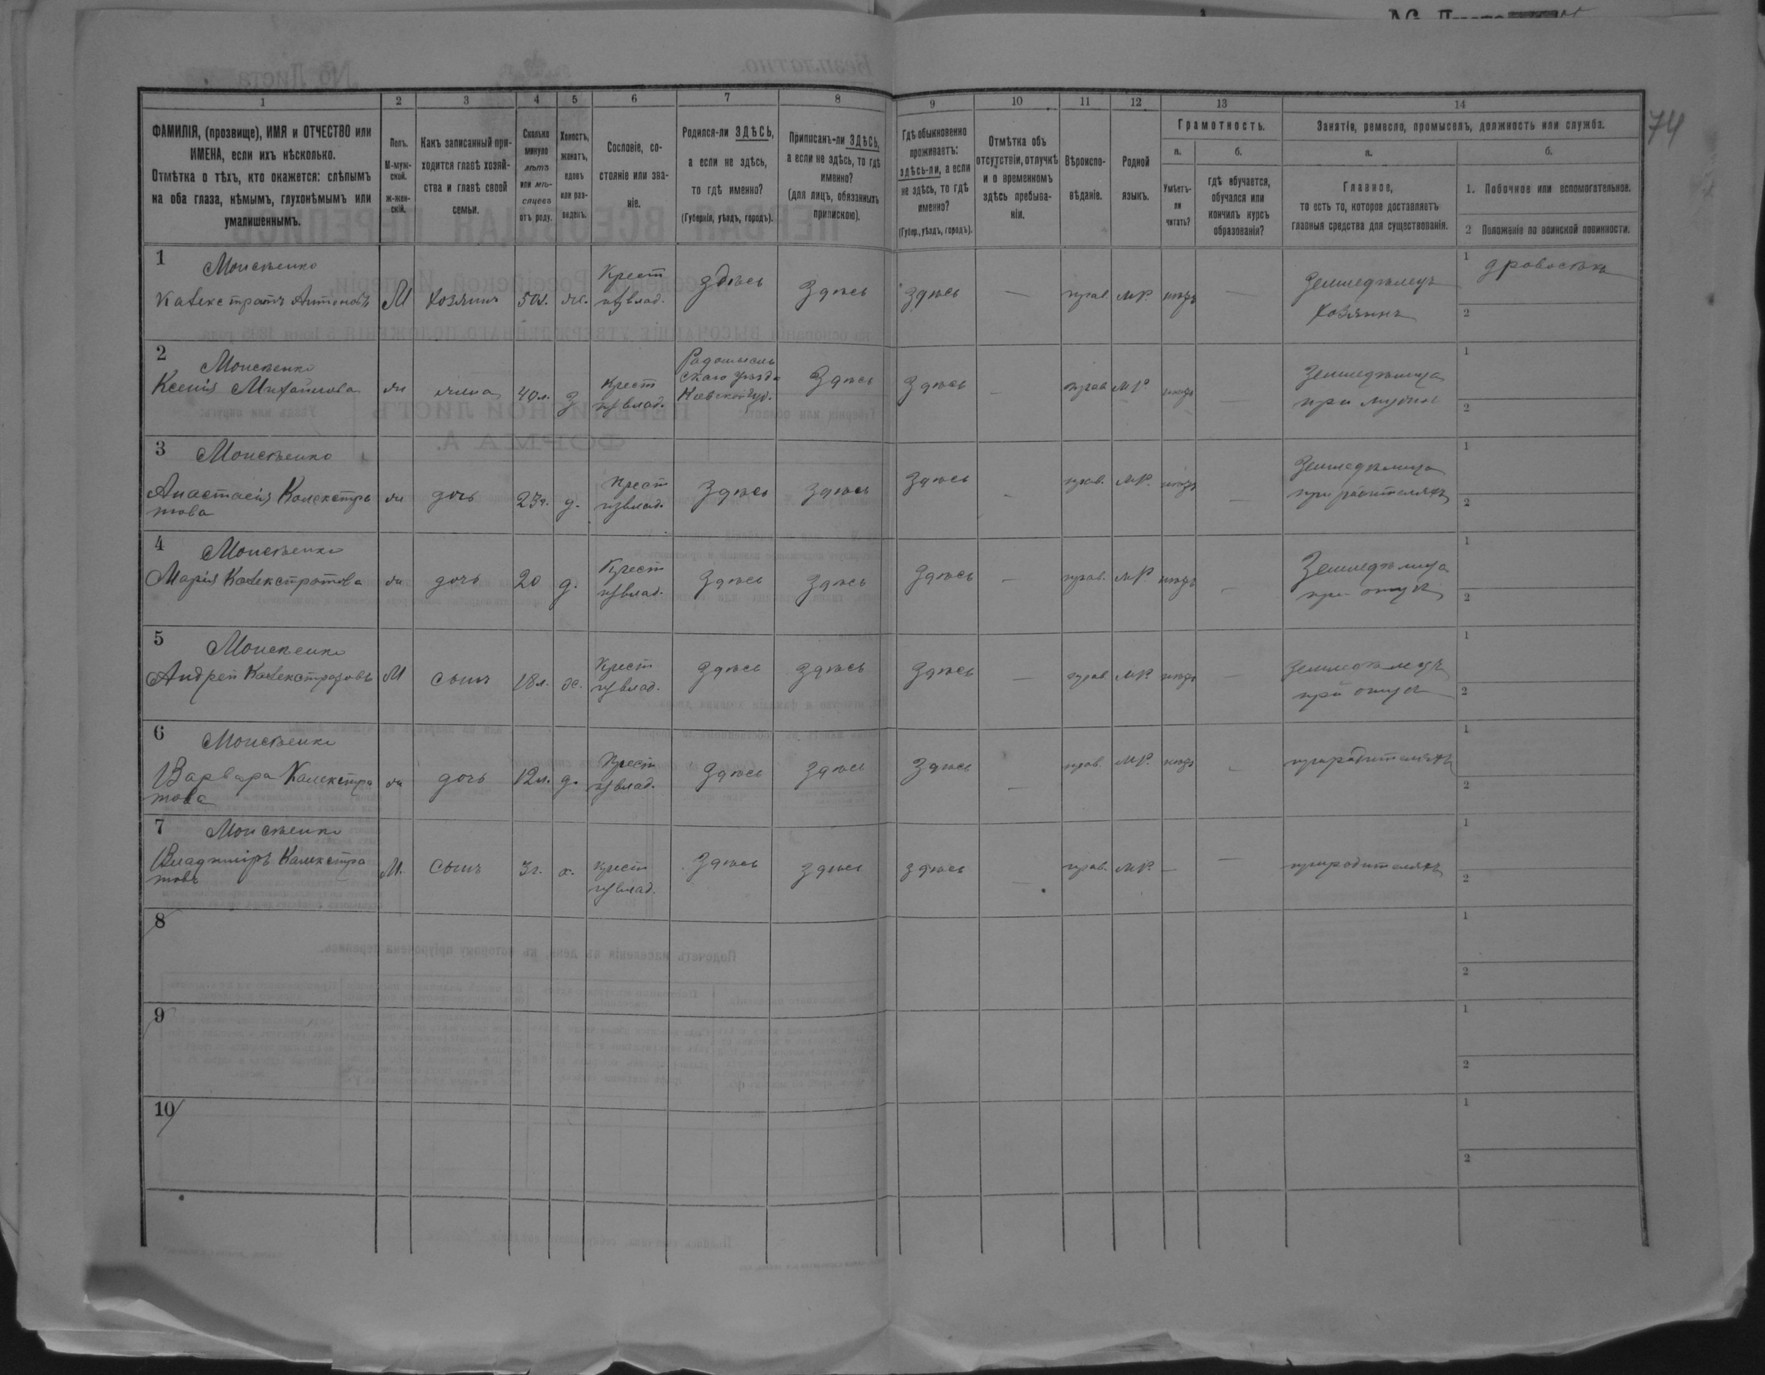 74
1 2 3 4 5 6 7 8 9 10 11 12 13 14
ФАМИЛІЯ, (прозвище), ИМЯ и ОТЧЕСТВО или
ИМЕНА, если ихъ нѣсколько.
Отмѣтка о тѣхъ, кто окажется: слѣпымъ
на оба глаза, нѣмымъ, глухонѣмымъ или
умалишеннымъ.
Полъ.
М-муж-
ской.
ж-жен-
скій.
Какъ записанный при-
ходится главѣ хозяй-
ства и главѣ своей
семьи.
Сколько
минуло
лѣтъ
или мѣ-
сяцевъ
отъ роду.
Холостъ,
женатъ,
вдовъ
или раз-
веденъ.
Сословіе, со-
стояніе или зва-
ніе.
Родился-ли ЗДѢСЬ,
а если не здѣсь,
то гдѣ именно?
(Губернія, уѣздъ, городъ).
Приписанъ-ли ЗДѢСЬ,
а если не здѣсь, то гдѣ
именно?
(для лицъ, обязанныхъ
припискою).
Гдѣ обыкновенно
проживаетъ:
здѣсь-ли, а если
не здѣсь, то гдѣ
именно?
(Губер., уѣздъ, городъ).
Отмѣтка объ
отсутствіи, отлучкѣ
и о временномъ
здѣсь пребыва-
ніи.
Вѣроиспо-
вѣданіе.
Родной
языкъ.
Грамотность.
а.
Умѣетъ-
ли
читать?
б.
гдѣ обучается,
обучался или
кончилъ курсъ
образованія?
Занятіе, ремесло, промыселъ, должность или служба.
а.
Главное,
то есть то, которое доставляетъ
главныя средства для существованія.
б.
1. Побочное или вспомогательное.
2 Положеніе по воинской повинности.
1 Моисѣенко
Калекстратъ Антоновъ М Хозяинъ
Крест
изъ влад. здѣсь здѣсь здѣсь — прав. МР — Земледѣлецъ
хозяинъ
1 дровосѣкъ
2
2 Моисѣенко
Ксенія Михайлова жена 40 л. з
Крест
изъ влад. Радомысль
скаго уѣзда
Кіевской губ. здѣсь здѣсь — прав МР — Земледѣлица
при мужѣ
1
2
3 Моисѣенко
Анастасія Калекстра
това дочь 23 д.
Крест
изъ влад. здѣсь здѣсь здѣсь — прав. МР. — Земледѣлица
при родителяхъ
1
2
4 Моисѣенко
Марія Калекстратова дочь 20 д.
Крест
изъ влад. здѣсь здѣсь здѣсь — прав. МР — Земледѣлица
при отцѣ
1
2
5 Моисѣенко
Андрей Калекстратовъ М сынъ 18 л. х.
Крест
изъ влад. здѣсь здѣсь здѣсь — прав МР — Земледѣлецъ
при отцѣ
1
2
6 Моисѣенко
Варвара Калекстра
това дочь 12 л. д.
Крест
изъ влад. здѣсь здѣсь здѣсь — прав. МР. — при родителяхъ
1
2
7 Моисѣенко
Владиміръ Калекстра
товъ М. сынъ 3 г. х.
Крест
изъ влад. здѣсь здѣсь здѣсь — прав. МР — — при родителяхъ
1
2
8
1
2
9
1
2
10
1
2